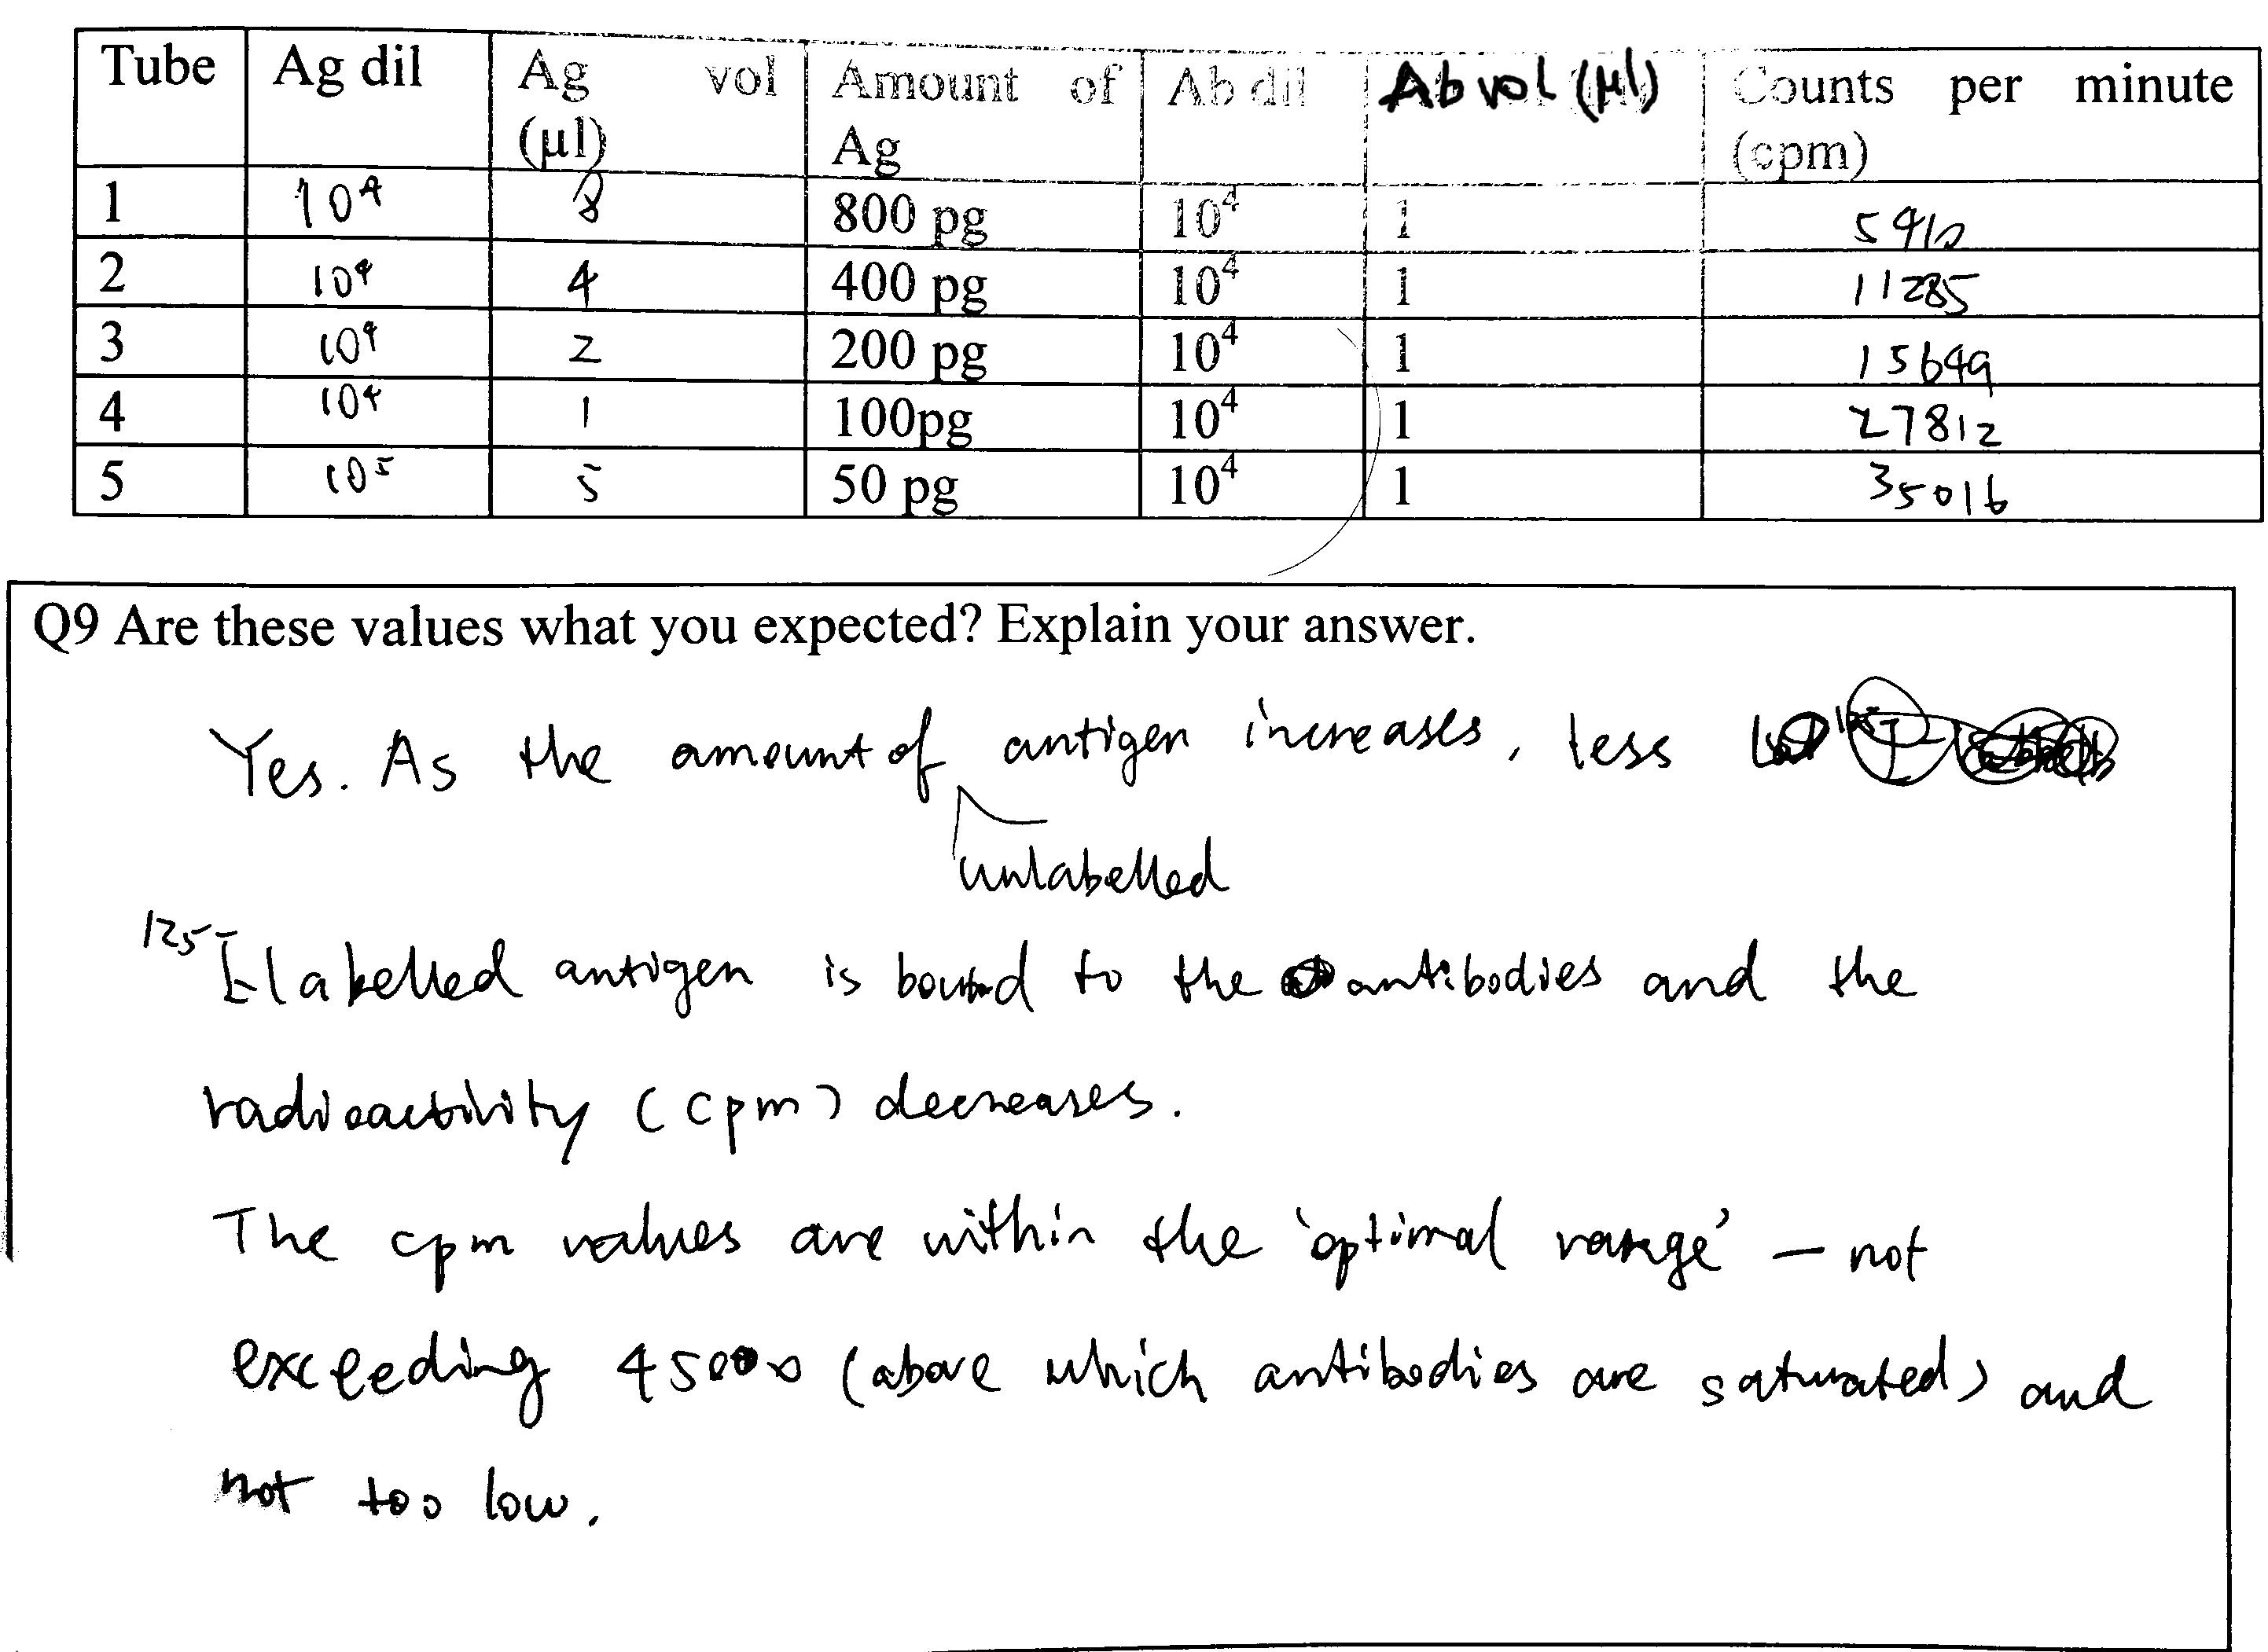 Tube Ag dil Ag vol (µl) Amount of Ag Ab dil Ab vol (µl) Counts per minute (cpm)
1 10⁴ 8 800 pg 10⁴ 1 5910
2 10⁴ 4 400 pg 10⁴ 1 11285
3 10⁴ 2 200 pg 10⁴ 1 15649
4 10⁴ 1 100pg 10⁴ 1 27812
5 10⁵ 5 50 pg 10⁴ 1 35016
Q9 Are these values what you expected? Explain your answer.
Yes. As the amount of antigen increases, less
unlabelled
¹²⁵I labelled antigen is bound to the antibodies and the
radioactivity (cpm) decreases.
The cpm values are within the 'optimal range' — not
exceeding 45000 (above which antibodies are saturated) and
not too low.